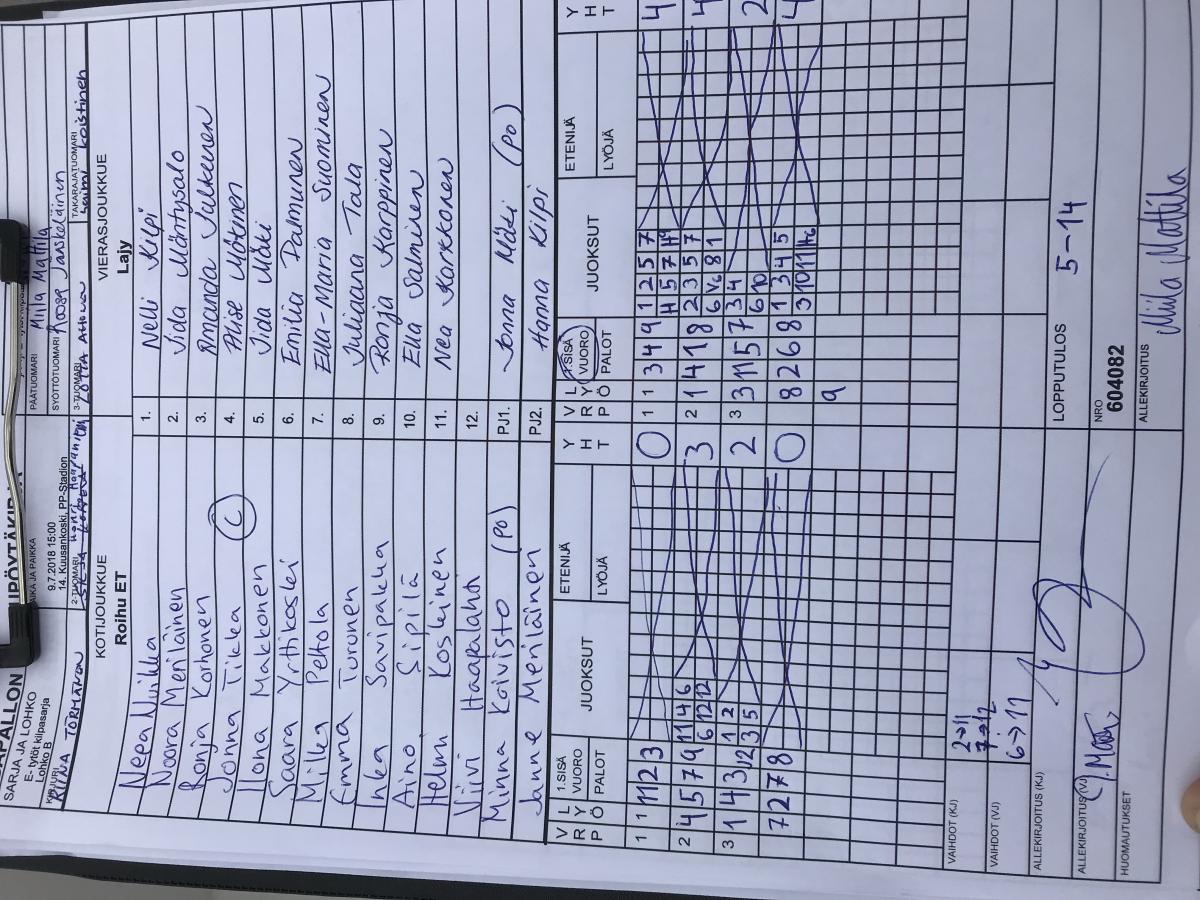 SARJA JA LOHKO
E- tytöt kilpasarja
Lohko B
AIKA JA PAIKKA
9.7.2018 15:00
14. Kuusankoski, PP-Stadion
PÄÄTUOMARI
Miila Mattila
SYÖTTÖTUOMARI Roosa Jääskeläinen
2-TUOMARI
3-TUOMARI
TAKARAJATUOMARI
KOTIJOUKKUE
Roihu ET
VIERASJOUKKUE
Lajy
1. Nelli Kilpi
Noora Meriläinen
2. Iida Mäntysalo
Ronja Korhonen
3. Amanda Jalkanen
Jonna Tikka C
4. Alise Mökinen
Ilona Makkonen
5. Iida Mäki
Saara Yrttikoski
6. Emilia Palmunen
Milka Peltola
7. Ella-Maria Suominen
Emma Turonen
8. Juliaana Tala
Inka Savipakka
9. Ronja Korppinen
Aino Sipilä
10. Ella Salminen
Helmi Koskinen
11. Nea Korkkonen
Viivi Haapalahti
12.
Minna Koivisto (PO)
PJ1. Jonna Mäki (PO)
Janne Meriläinen
PJ2. Hanna Kilpi
V R P
L Y Ö
1.SISÄ
VUORO
PALOT
JUOKSUT
ETENIJÄ
LYÖJÄ
Y H T
V R P
L Y Ö
1.SISÄ
VUORO
PALOT
JUOKSUT
ETENIJÄ
LYÖJÄ
Y H T
1 1 11 2 3
0
1 1 3 4 9
1 2 5 7
4
2 4 5 7 9
11 4 6
6 12 12
3
2 1 4 1 8
2 3 5 7
4
3 1 4 3 12
1 2
3 5
2
3 3 11 5 7
3 4
6 10
2
7 2 7 8
0
8 2 6 8
1 3 4 5
4
9
VAIHDOT (KJ)
2→11
7→12
VAIHDOT (VJ)
6→11
ALLEKIRJOITUS (KJ)
LOPPUTULOS
5-14
ALLEKIRJOITUS (VJ)
NRO
604082
HUOMAUTUKSET
ALLEKIRJOITUS
Miila Mattila